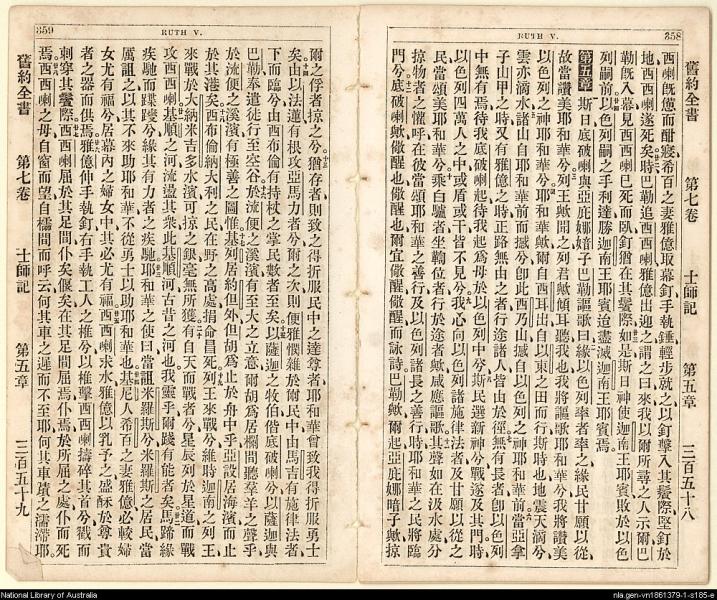 RUTH V.
358
舊約全書 第七卷 士師記 第五章 三百五十八
西喇既憊而酣寢希百之妻雅億取幕釘手執錘輕步就之以釘擊入其鬢際堅釘於
地西西喇遂死矣時巴勒追西西喇雅億出迎之謂之曰來我以爾所尋之人示爾巴
勒既入幕見西西喇已死而臥釘猶在其鬢際如是斯日神使迦南王耶賓敗於以色
列嗣前以色列嗣之手利達勝迦南王耶賓迨盡滅迦南王耶賓焉
第五章 斯日底破喇與亞庇娜暗子巴勒謳歌曰緣以色列率者率之緣民甘願以從
故當讚美耶和華兮列王歟聞之列君歟傾聽我也我將謳歌耶和華兮我將讚美
以色列之神耶和華兮耶和華歟爾自西耳出自以東之田而行斯時也地震天滴兮
雲亦滴水諸山自耶和華前而撼兮卽此西乃山撼自以色列之神耶和華前當亞拿
子山甲之時又有雅億之時正路無由之者行途諸人皆由於徑無有長者卽以色列
中無有焉待我底破喇起待我起為母於以色列中兮斯民選新神兮戰遂及其門時
以色列四萬人之中或盾或干皆不見兮我心向以色列諸施律法者及甘願以從之
民當頌美耶和華兮乘白驢者坐審位者行於途者歟咸應謳歌其聲如在汲水處分
掠物者之懽呼在彼當頌耶和華之善行及以色列諸長之善行時耶和華之民將臨
門兮底破喇歟儆醒也儆醒也爾宜儆醒儆醒而詠詩巴勒歟爾起亞庇娜暗子歟掠
RUTH V.
359
爾之俘者掠之兮猶存者則致之得折服民中之達尊者耶和華曾致我得折服勇士
矣由以法蓮有根攻亞馬力者兮爾之次則便雅憫雜於爾民中由馬吉有施律法者
下而臨兮由西布倫有持杖之掌民數者至矣以薩之牧伯偕底破喇兮以薩迦與
巴勒奉遣徒行至空谷於流便之溪濱有至大之立意爾胡為居欄間聽羣羊之聲乎
於流便之溪濱有極善之圖惟基列居約但外但胡為止於舟中乎亞設居海濱而止
於其港矣西布倫納大利之民在野之高處捐命昌死列王來戰兮維時迦南之列王
來戰於大納米吉多水濱可掠之銀毫無所獲有自天而戰者兮星辰列於星道而戰
攻西西喇基順之河流盪其衆此基順河古昔之河也我靈乎爾踐有能者矣馬蹄緣
疾馳而蹀躞兮緣其有力者之疾馳耶和華之使曰當詛米羅斯兮米羅斯之居民當
厲詛之以其不來助耶和華不從勇士以助耶和華也基尼人希百之妻雅億必較婦
女尤有福兮居幕內之婦女中其必尤有福西西喇求水雅億以乳予之盛酥於尊貴
者之器而供焉雅億伸手執釘右手執工人之椎兮以椎擊西西喇擣碎其首兮戳而
刺穿其鬢際西西喇屈於其足間仆矣偃矣在其足間屈焉仆焉於所屈之處仆而死
焉西西喇之母自窗而望自櫺間而呼云何其車之遲而不至耶何其車蹟之濡滯耶
舊約全書 第七卷 士師記 第五章 三百五十九
National Library of Australia
nla.gen-vn1861379-1-s185-e